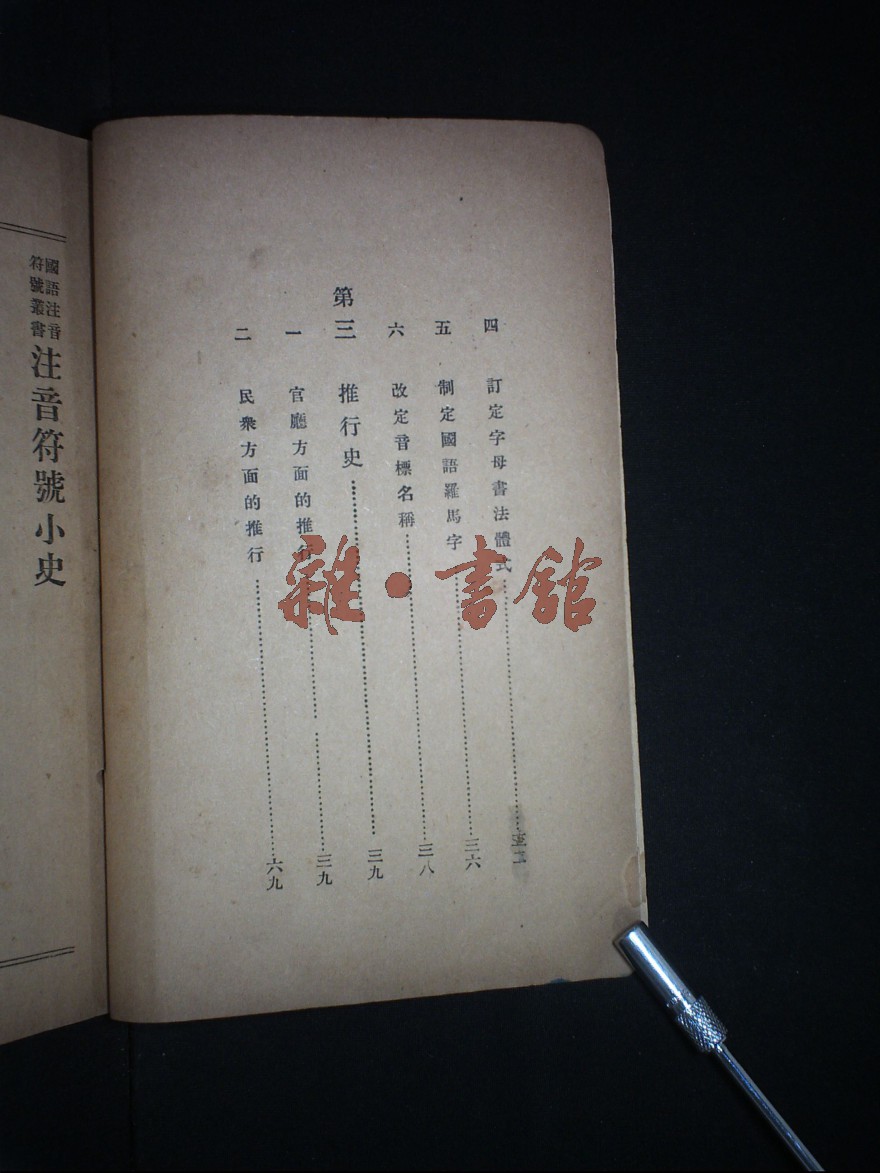 四 訂定字母書法體式
五 制定國語羅馬字 三六
六 改定音標名稱 三八
第三 推行史 三九
一 官廳方面的推行 三九
二 民衆方面的推行 六九
國語注音
符號叢書
注音符號小史
雜·書館